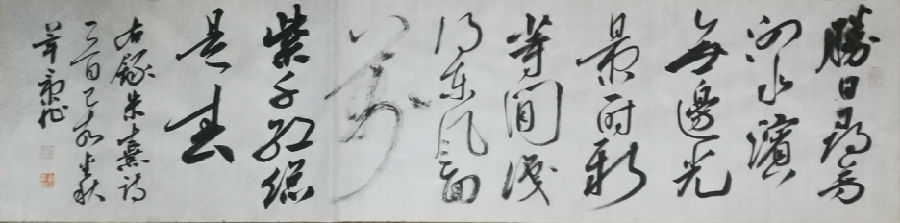 勝日尋芳
泗水濱
無邊光
景一時新
等閒識
得東風面
萬
紫千紅總
是春
右錄朱熹詩
一首己亥秋